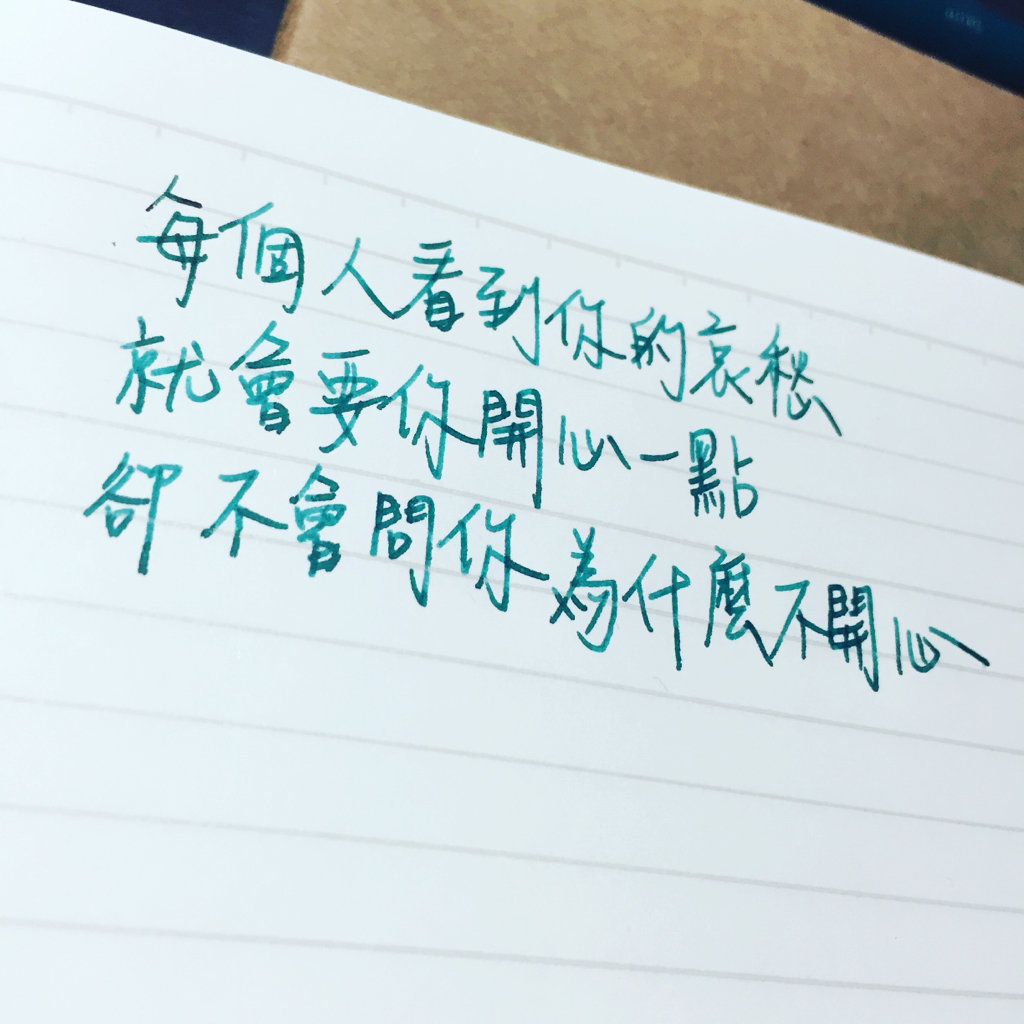 每個人看到你的哀愁
就會要你開心一點
卻不會問你為什麼不開心